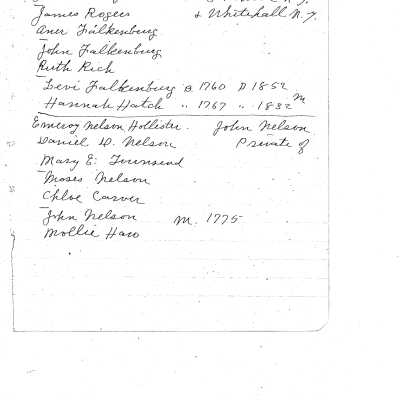 James Rogers & Whitehall N.Y.
Aner Falkenburg
John Falkenburg
Ruth Rich
Levi Falkenburg B 1760 D 1852
Hannah Hatch " 1767 " 1832 m
Emeroy Nelson Hollister. John Nelson
Daniel D. Nelson Private of
Mary E. Townsend
Moses Nelson
Chloe Carver
John Nelson M. 1775
Mollie Haw